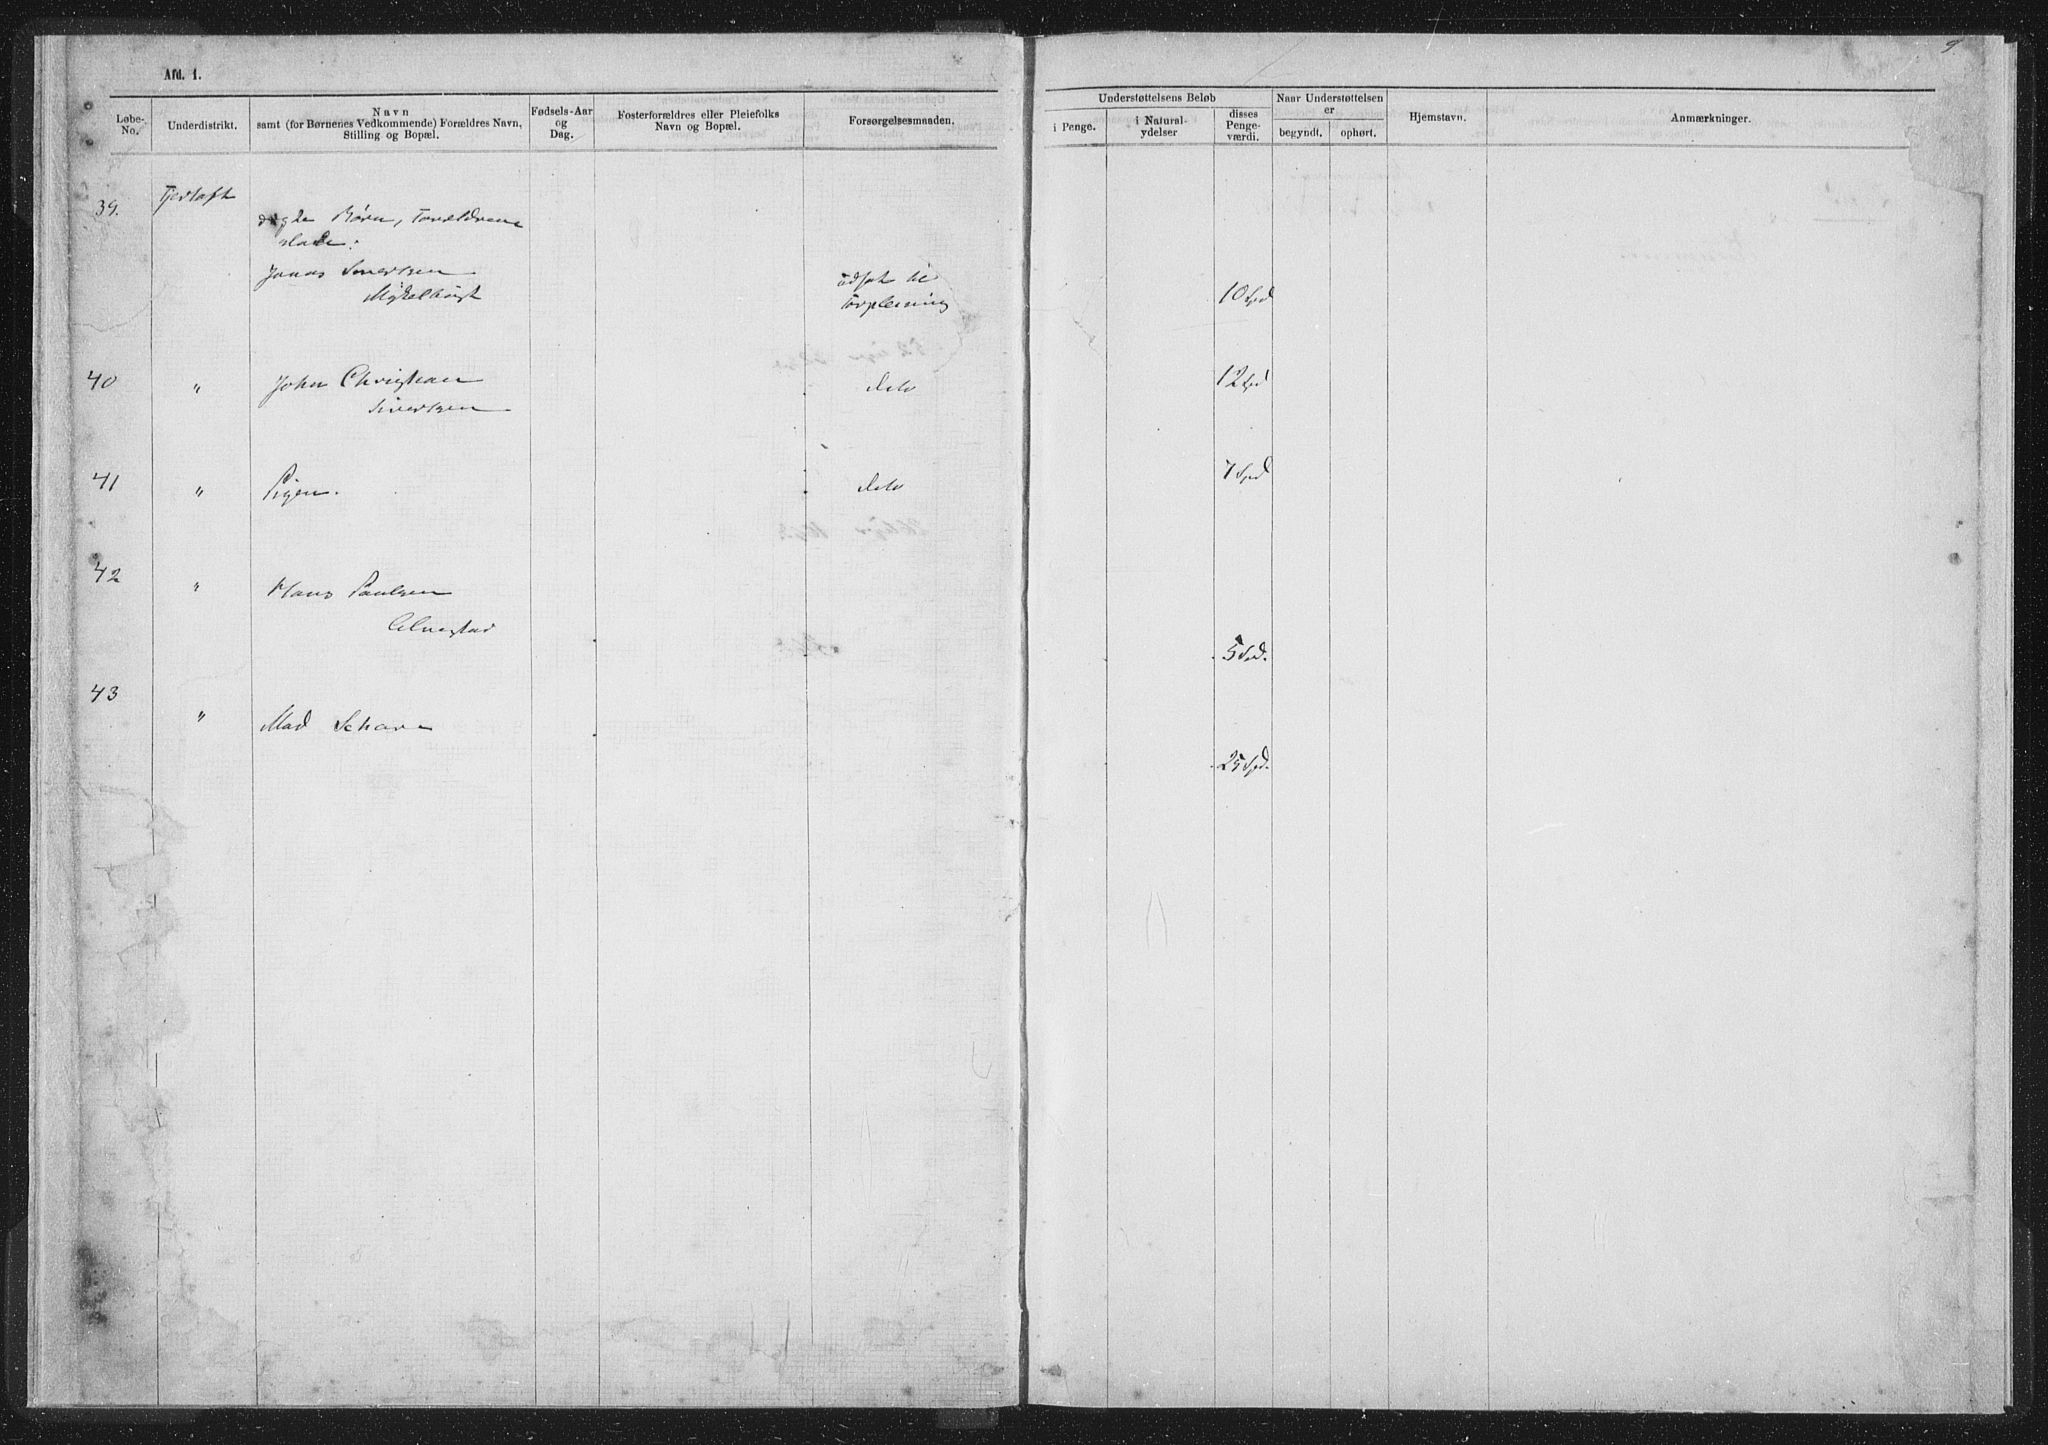 9
Afd. 1.
Løbe-No.
Underdistrikt.
Navn
samt (for Børnenes Vedkommende) Forældres Navn,
Stilling og Bopæl.
Fødsels-Aar
og
Dag.
Fosterforældres eller Pleiefolks
Navn og Bopæl.
Forsørgelsesmaaden.
Understøttelsens Beløb
i Penge.
i Natural-
ydelser
disses
Penge-
værdi.
Naar Understøttelsen
er
begyndt.
ophørt.
Hjemstavn.
Anmærkninger.
39.
Børn, Forældrene
Jonas Sivertsen
udsat til
10 Spd
Forpleining
40 " John Christian detto 12 Spd
Sivertsen
41 " Pigen. detto 7 Spd
42 " Hans Paulsen
5 Spd.
43 " Mad Schar
25 Spd.